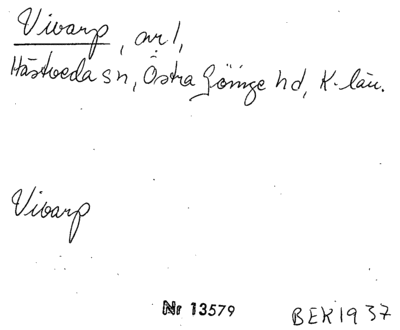 Vivarp, arl,
Hästveda sn, Östra Göinge hd, K-län.
Vivarp
Nr 13579 BEK 1937